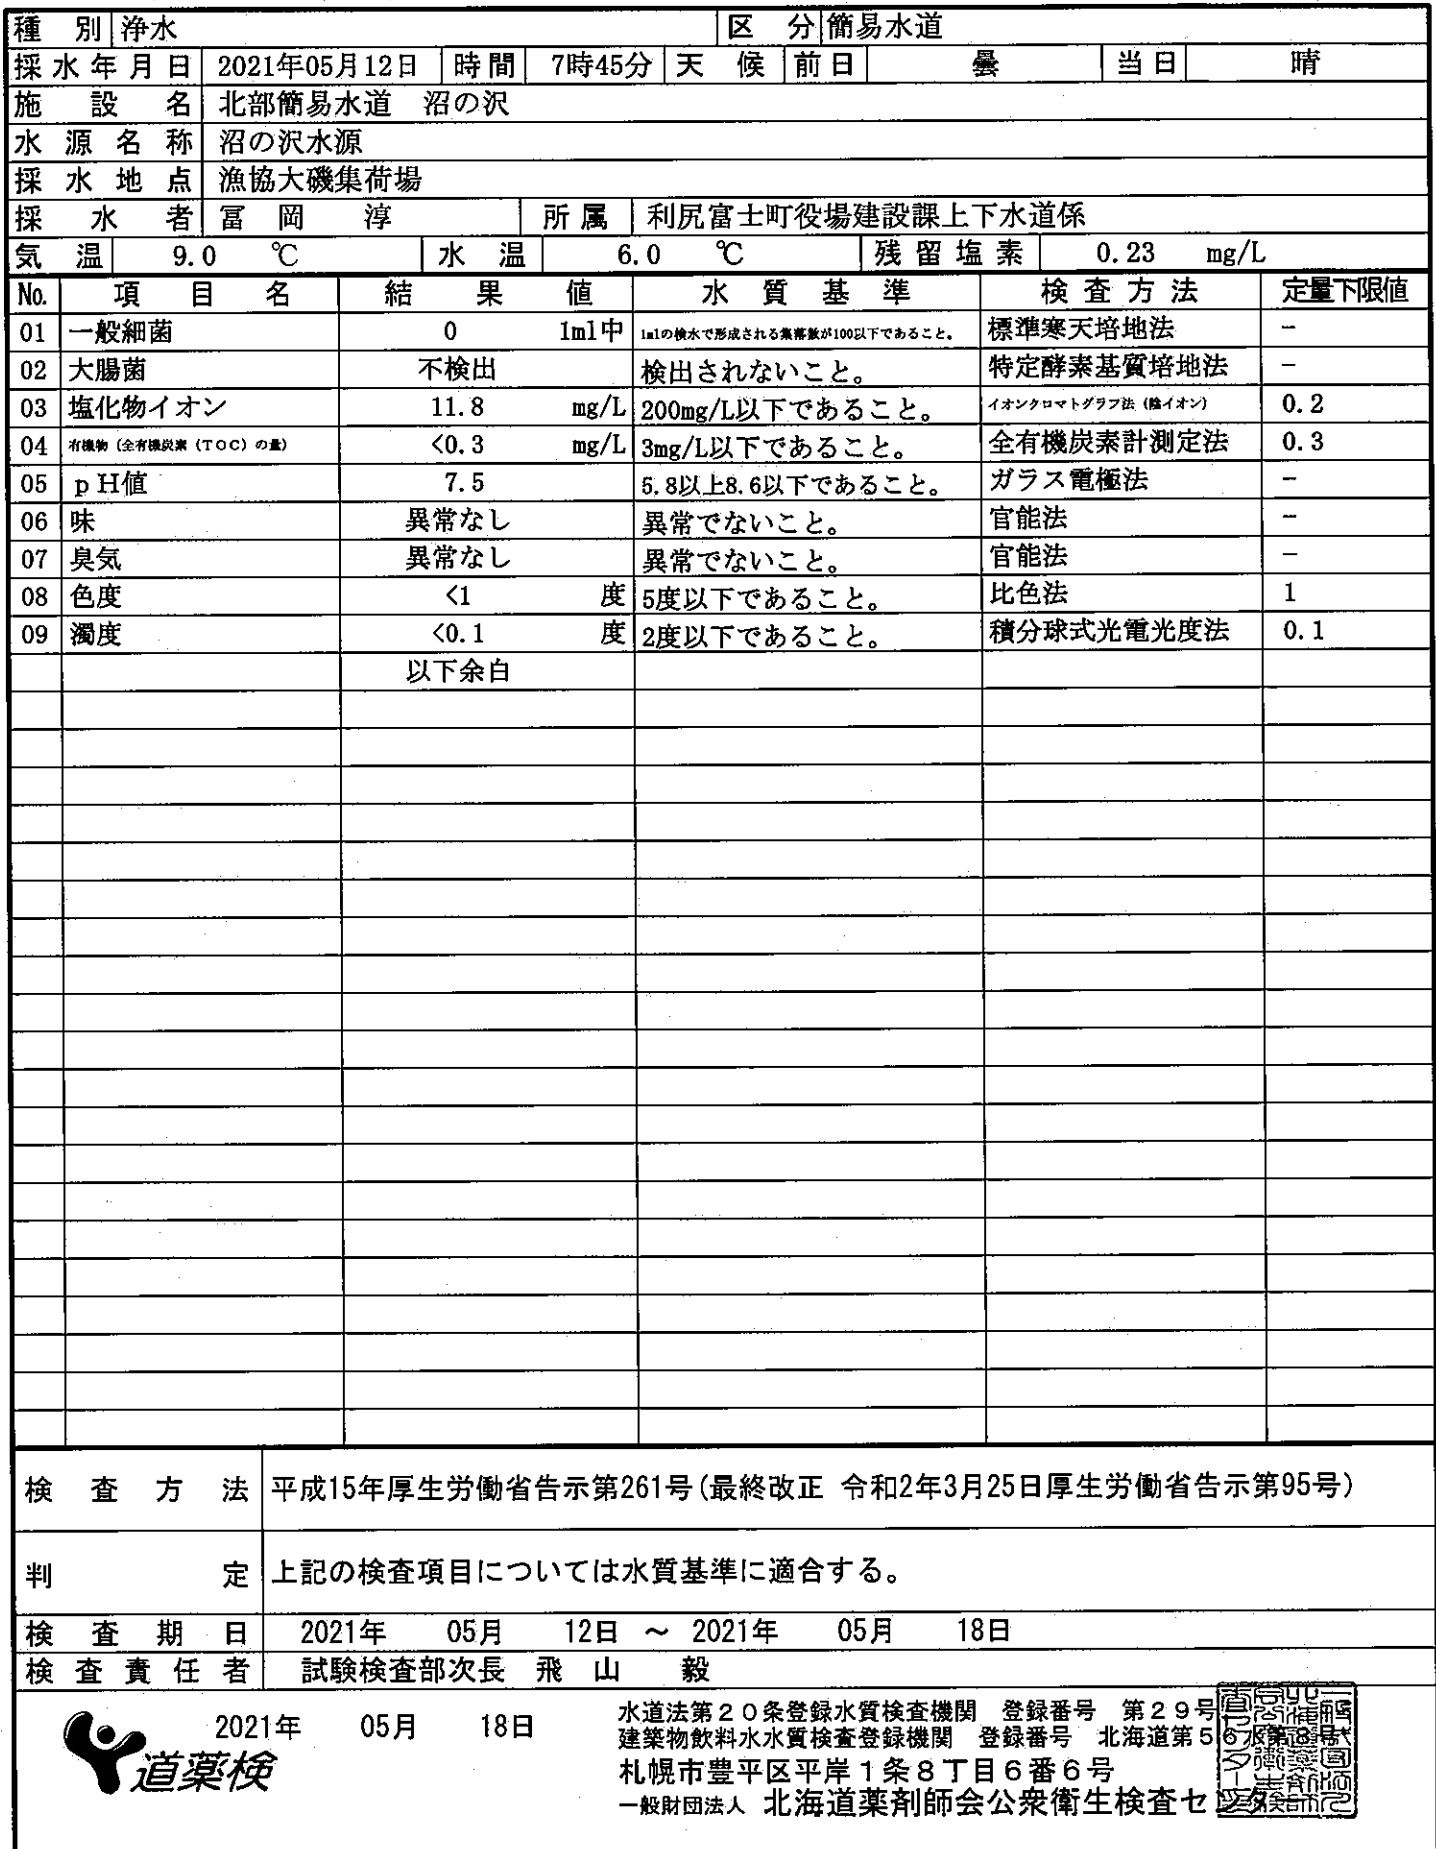 種別 浄水 区分 簡易水道
採水年月日 2021年05月12日 時間 7時45分 天候 前日 曇 当日 晴
施設名 北部簡易水道 沼の沢
水源名称 沼の沢水源
採水地点 漁協大磯集荷場
採水者 冨岡 淳 所属 利尻富士町役場建設課上下水道係
気温 9.0 ℃ 水温 6.0 ℃ 残留塩素 0.23 mg/L
No. 項目名 結果値 水質基準 検査方法 定量下限値
01 一般細菌 0 1ml中 1mlの検水で形成される集落数が100以下であること。 標準寒天培地法 −
02 大腸菌 不検出 検出されないこと。 特定酵素基質培地法 −
03 塩化物イオン 11.8 mg/L 200mg/L以下であること。 イオンクロマトグラフ法(陰イオン) 0.2
04 有機物(全有機炭素(TOC)の量) <0.3 mg/L 3mg/L以下であること。 全有機炭素計測定法 0.3
05 pH値 7.5 5.8以上8.6以下であること。 ガラス電極法 −
06 味 異常なし 異常でないこと。 官能法 −
07 臭気 異常なし 異常でないこと。 官能法 −
08 色度 <1 度 5度以下であること。 比色法 1
09 濁度 <0.1 度 2度以下であること。 積分球式光電光度法 0.1
以下余白
検査方法 平成15年厚生労働省告示第261号(最終改正 令和2年3月25日厚生労働省告示第95号)
判定 上記の検査項目については水質基準に適合する。
検査期日 2021年 05月 12日 ~ 2021年 05月 18日
検査責任者 試験検査部次長 飛山 毅
2021年 05月 18日
道薬検
水道法第20条登録水質検査機関 登録番号 第29号
建築物飲料水水質検査登録機関 登録番号 北海道第56水第8号
札幌市豊平区平岸1条8丁目6番6号
一般財団法人 北海道薬剤師会公衆衛生検査センター